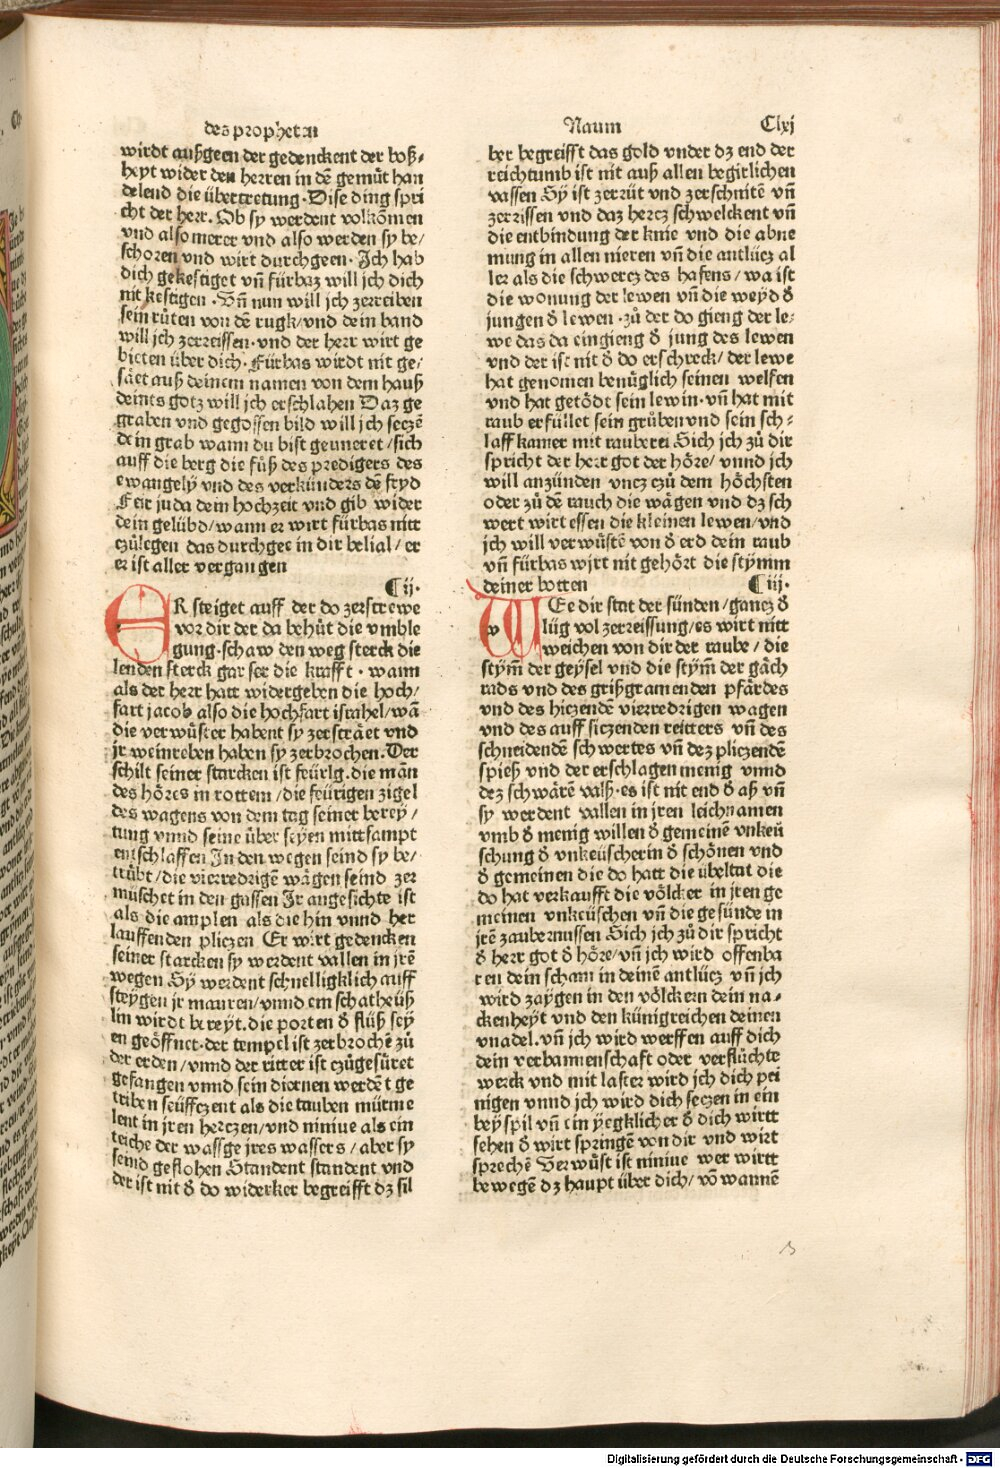 des propheten Naum Clxj
wirdt außgeen der gedenckent der boß⸗
heyt wider den herren in dē gemůt han
delend die übertretung. Dise ding spri
cht der herr. Ob sy werdent volkōmen
vnd also merer vnd also werden sy be/
schoren vnd wirt durchgeen. Ich hab
dich gekestiget vn̄ fürbaz will jch dich
nit kestigen. Vn̄ nun will jch zerreiben
sein růten von dē rugk/vnd dein band
will jch zerreissen. vnd der herr wirt ge
bieten über dich. Fürbas wirdt nit ge/
säet auß deinem namen von dem hauß
deints gotz will jch erschlahen Daz ge
graben vnd gegossen bild will jch seczē
dein grab wann du bist geuneret/sich
auff die berg die fůß des predigers des
ewangely vnd des verkünders dē fryd
Feir juda dein hochzeit vnd gib wider
dein gelübd/wann er wirt fürbas nitt
czůlegen das durchgee in dir belial/er
er ist aller vergangen
¶ij.
ER steiget auff der do zerstrewe
vor dir der da behůt die vmble
gung. schaw den weg sterck die
lenden sterck gar ser die krafft. wann
als der herr hatt widergeben die hoch/
fart jacob also die hochfart israhel/wā
die verwůster habent sy zersträet vnd
jr weinreben haben sy zerbrochen. Der
schilt seiner starcken ist feürig. die mān
des höres in rottem/die feürigen zigel
des wagens von dem tag seiner berey/
tung vnnd seine über seyen mittsampt
entschlaffen In den wegen seind sy be/
trůbt/die vierredrigē wägen seind zer
müschet in den gassen Ir angesichte ist
als die amplen als die hin vnnd her
lauffenden pliczen Er wirt gedencken
seiner starcken sy werdent vallen in jrē
wegen Sy werdent schnelligklich auff
steygen jr mauren/vnnd ein schatheüß
lin wirdt bereyt. die porten ð flüß sey
en geöffnet. der tempel ist zerbrochē zů
der erden/vnnd der ritter ist czůgefüret
gefangen vnnd sein diernen werdēt ge
triben seüffczent als die tauben mürme
lent in jren herczen/vnd niniue als ein
teiche der wassge jres wassers/aber sy
seind geflohen Standent standent vnd
der ist nit ð do widerker begreifft dz sil
ber begreifft das gold vnder dz end der
reichtumb ist nit auß allen begirlichen
vassen Sy ist zerrüt vnd zerschnitē vn̄
zerrissen vnd daz hercz schwelckent vn̄
die entbindung der knie vnd die abne
mung in allen nieren vn̄ die antlücz al
ler als die schwercz des hafens/wa ist
die wonung der lewen vn̄ die weyd ð
jungen ð lewen. zů der do gieng der le⸗
we das da eingieng ð jung des lewen
vnd der ist nit ð do erschreck/der lewe
hat genomen benüglich seinen welfen
vnd hat getödt sein lewin. vn̄ hat mit
raub erfüllet sein grůben vnd sein sch⸗
laff kamer mit rauberei Sich jch zů dir
spricht der herr got der höre/vnnd jch
will anzünden vncz czů dem höchsten
oder zů dē rauch die wägen vnd dz sch
wert wirt essen die kleinen lewen/vnd
jch will verwůstē von ð erd dein raub
vn̄ fürbas wirt nit gehört die stymm
deiner botten ¶iij.
WEe dir stat der sünden/gancz ð
lüg vol zerreissung/es wirt nitt
weichen von dir der raube/die
stym̄ der geysel vnd die stym̄ der gäch
rads vnd des grißgramenden pfärdes
vnd des hiczendē vierredrigen wagen
vnd des auff siczenden reitters vn̄ des
schneidendē schwertes vn̄ dez pliczendē
spieß vnd der erschlagen menig vnnd
dez schwärē valß. es ist nit end ð aß vn̄
sy werdent vallen in jren leichnamen
vmb ð menig willen ð gemeinē vnkeü
schung ð vnkeüscherin ð schönen vnd
ð gemeinen die do hatt die übeltat die
do hat verkaufft die völcker in jren ge
meinen vnkeüschen vn̄ die gesünde in
jrē zaubernussen Sich jch zů dir spricht
ð herr got ð höre/vn̄ jch wird offenba
ren dein scham in deinē antlücz vn̄ jch
wird zaygen in den völckern dein na⸗
ckenheyt vnd den künigreichen deinen
vnadel. vn̄ jch wird werffen auff dich
dein verbannenschaft oder verflůchte
werck vnd mit laster wird jch dich pei
nigen vnnd jch wird dich seczen in ein
beyspil vn̄ ein yegklicher ð dich wirtt
sehen ð wirt springē von dir vnd wirt
sprechē Verwůst ist niniue wer wirtt
bewegē dz haupt über dich/vō wannē
Digitalisierung gefördert durch die Deutsche Forschungsgemeinschaft - DFG